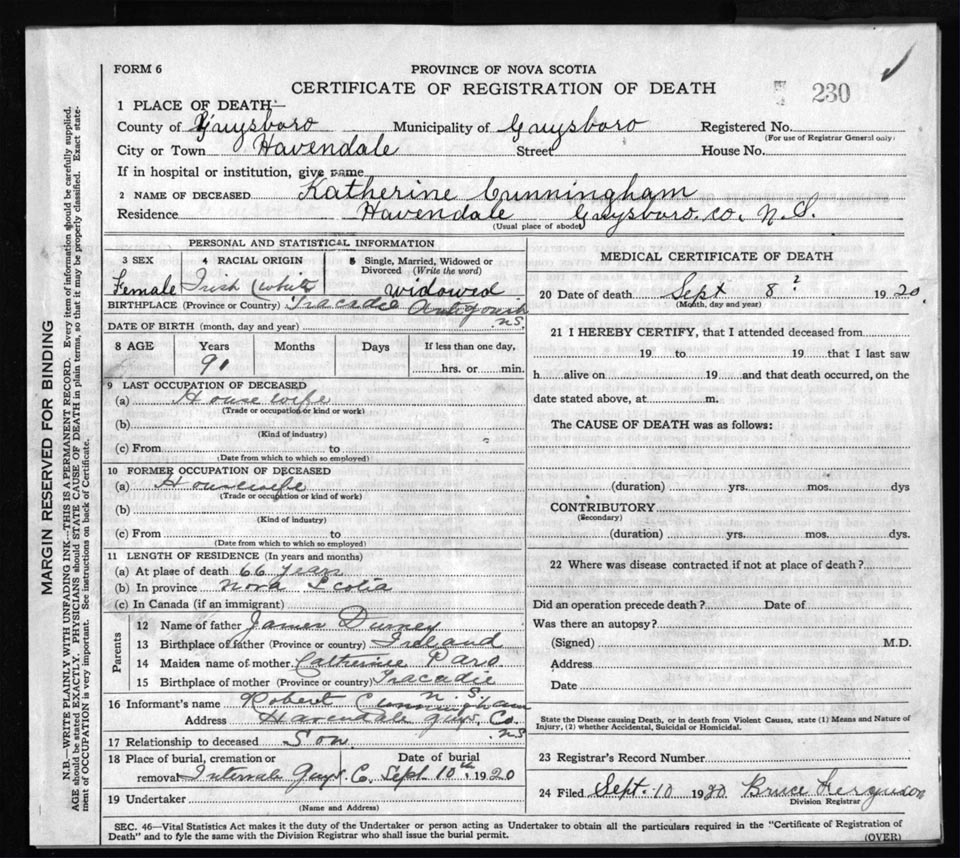 FORM 6
PROVINCE OF NOVA SCOTIA
CERTIFICATE OF REGISTRATION OF DEATH
230
1 PLACE OF DEATH—
County of Guysboro Municipality of Guysboro Registered No.
(For use of Registrar General only)
City or Town Havendale Street House No.
If in hospital or institution, give name
2 NAME OF DECEASED Katherine Cunningham
Residence Havendale Guysboro Co. N.S.
(Usual place of abode)
PERSONAL AND STATISTICAL INFORMATION
3 SEX 4 RACIAL ORIGIN 5 Single, Married, Widowed or Divorced (Write the word)
Female Irish (white widowed
BIRTHPLACE (Province or Country) Tracadie Antigonish N.S.
DATE OF BIRTH (month, day and year)
8 AGE Years Months Days If less than one day,
91 hrs. or min.
9 LAST OCCUPATION OF DECEASED
(a) House wife
(Trade or occupation or kind or work)
(b)
(Kind of industry)
(c) From to
(Date from which to which so employed)
10 FORMER OCCUPATION OF DECEASED
(a) Housewife
(Trade or occupation or kind of work)
(b)
(Kind of industry)
(c) From to
(Date from which to which so employed)
11 LENGTH OF RESIDENCE (In years and months)
(a) At place of death 66 years
(b) In province Nova Scotia
(c) In Canada (if an immigrant)
Parents
12 Name of father James Durney
13 Birthplace of father (Province or country) Ireland
14 Maiden name of mother Catherine
15 Birthplace of mother (Province or country) Tracadie N.S.
16 Informant's name Robert Cunningham
Address Havendale Guys. Co. NS
17 Relationship to deceased Son
18 Place of burial, cremation or Date of burial
removal Intervale Guys. C. Sept 10th 1920
19 Undertaker
(Name and Address)
MEDICAL CERTIFICATE OF DEATH
20 Date of death Sept 8 ? 1920.
(Month, day and year)
21 I HEREBY CERTIFY, that I attended deceased from
19 to 19 that I last saw
h alive on 19 and that death occurred, on the
date stated above, at m.
The CAUSE OF DEATH was as follows:
(duration) yrs. mos. dys
CONTRIBUTORY
(Secondary)
(duration) yrs. mos. dys.
22 Where was disease contracted if not at place of death?
Did an operation precede death? Date of
Was there an autopsy?
(Signed) M.D.
Address
Date
State the Disease causing Death, or in death from Violent Causes, state (1) Means and Nature of
Injury, (2) whether Accidental, Suicidal or Homicidal.
23 Registrar's Record Number
24 Filed Sept. 10 1920 Bruce Ferguson
Division Registrar
SEC. 46—Vital Statistics Act makes it the duty of the Undertaker or person acting as Undertaker to obtain all the particulars required in the "Certificate of Registration of
Death" and to fyle the same with the Division Registrar who shall issue the burial permit. (OVER)
MARGIN RESERVED FOR BINDING
N.B.—WRITE PLAINLY WITH UNFADING INK—THIS IS A PERMANENT RECORD. Every item of information should be carefully supplied.
AGE should be stated EXACTLY. PHYSICIANS should STATE CAUSE OF DEATH in plain terms, so that it may be properly classified. Exact state-
ment of OCCUPATION is very important. See instructions on back of Certificate.